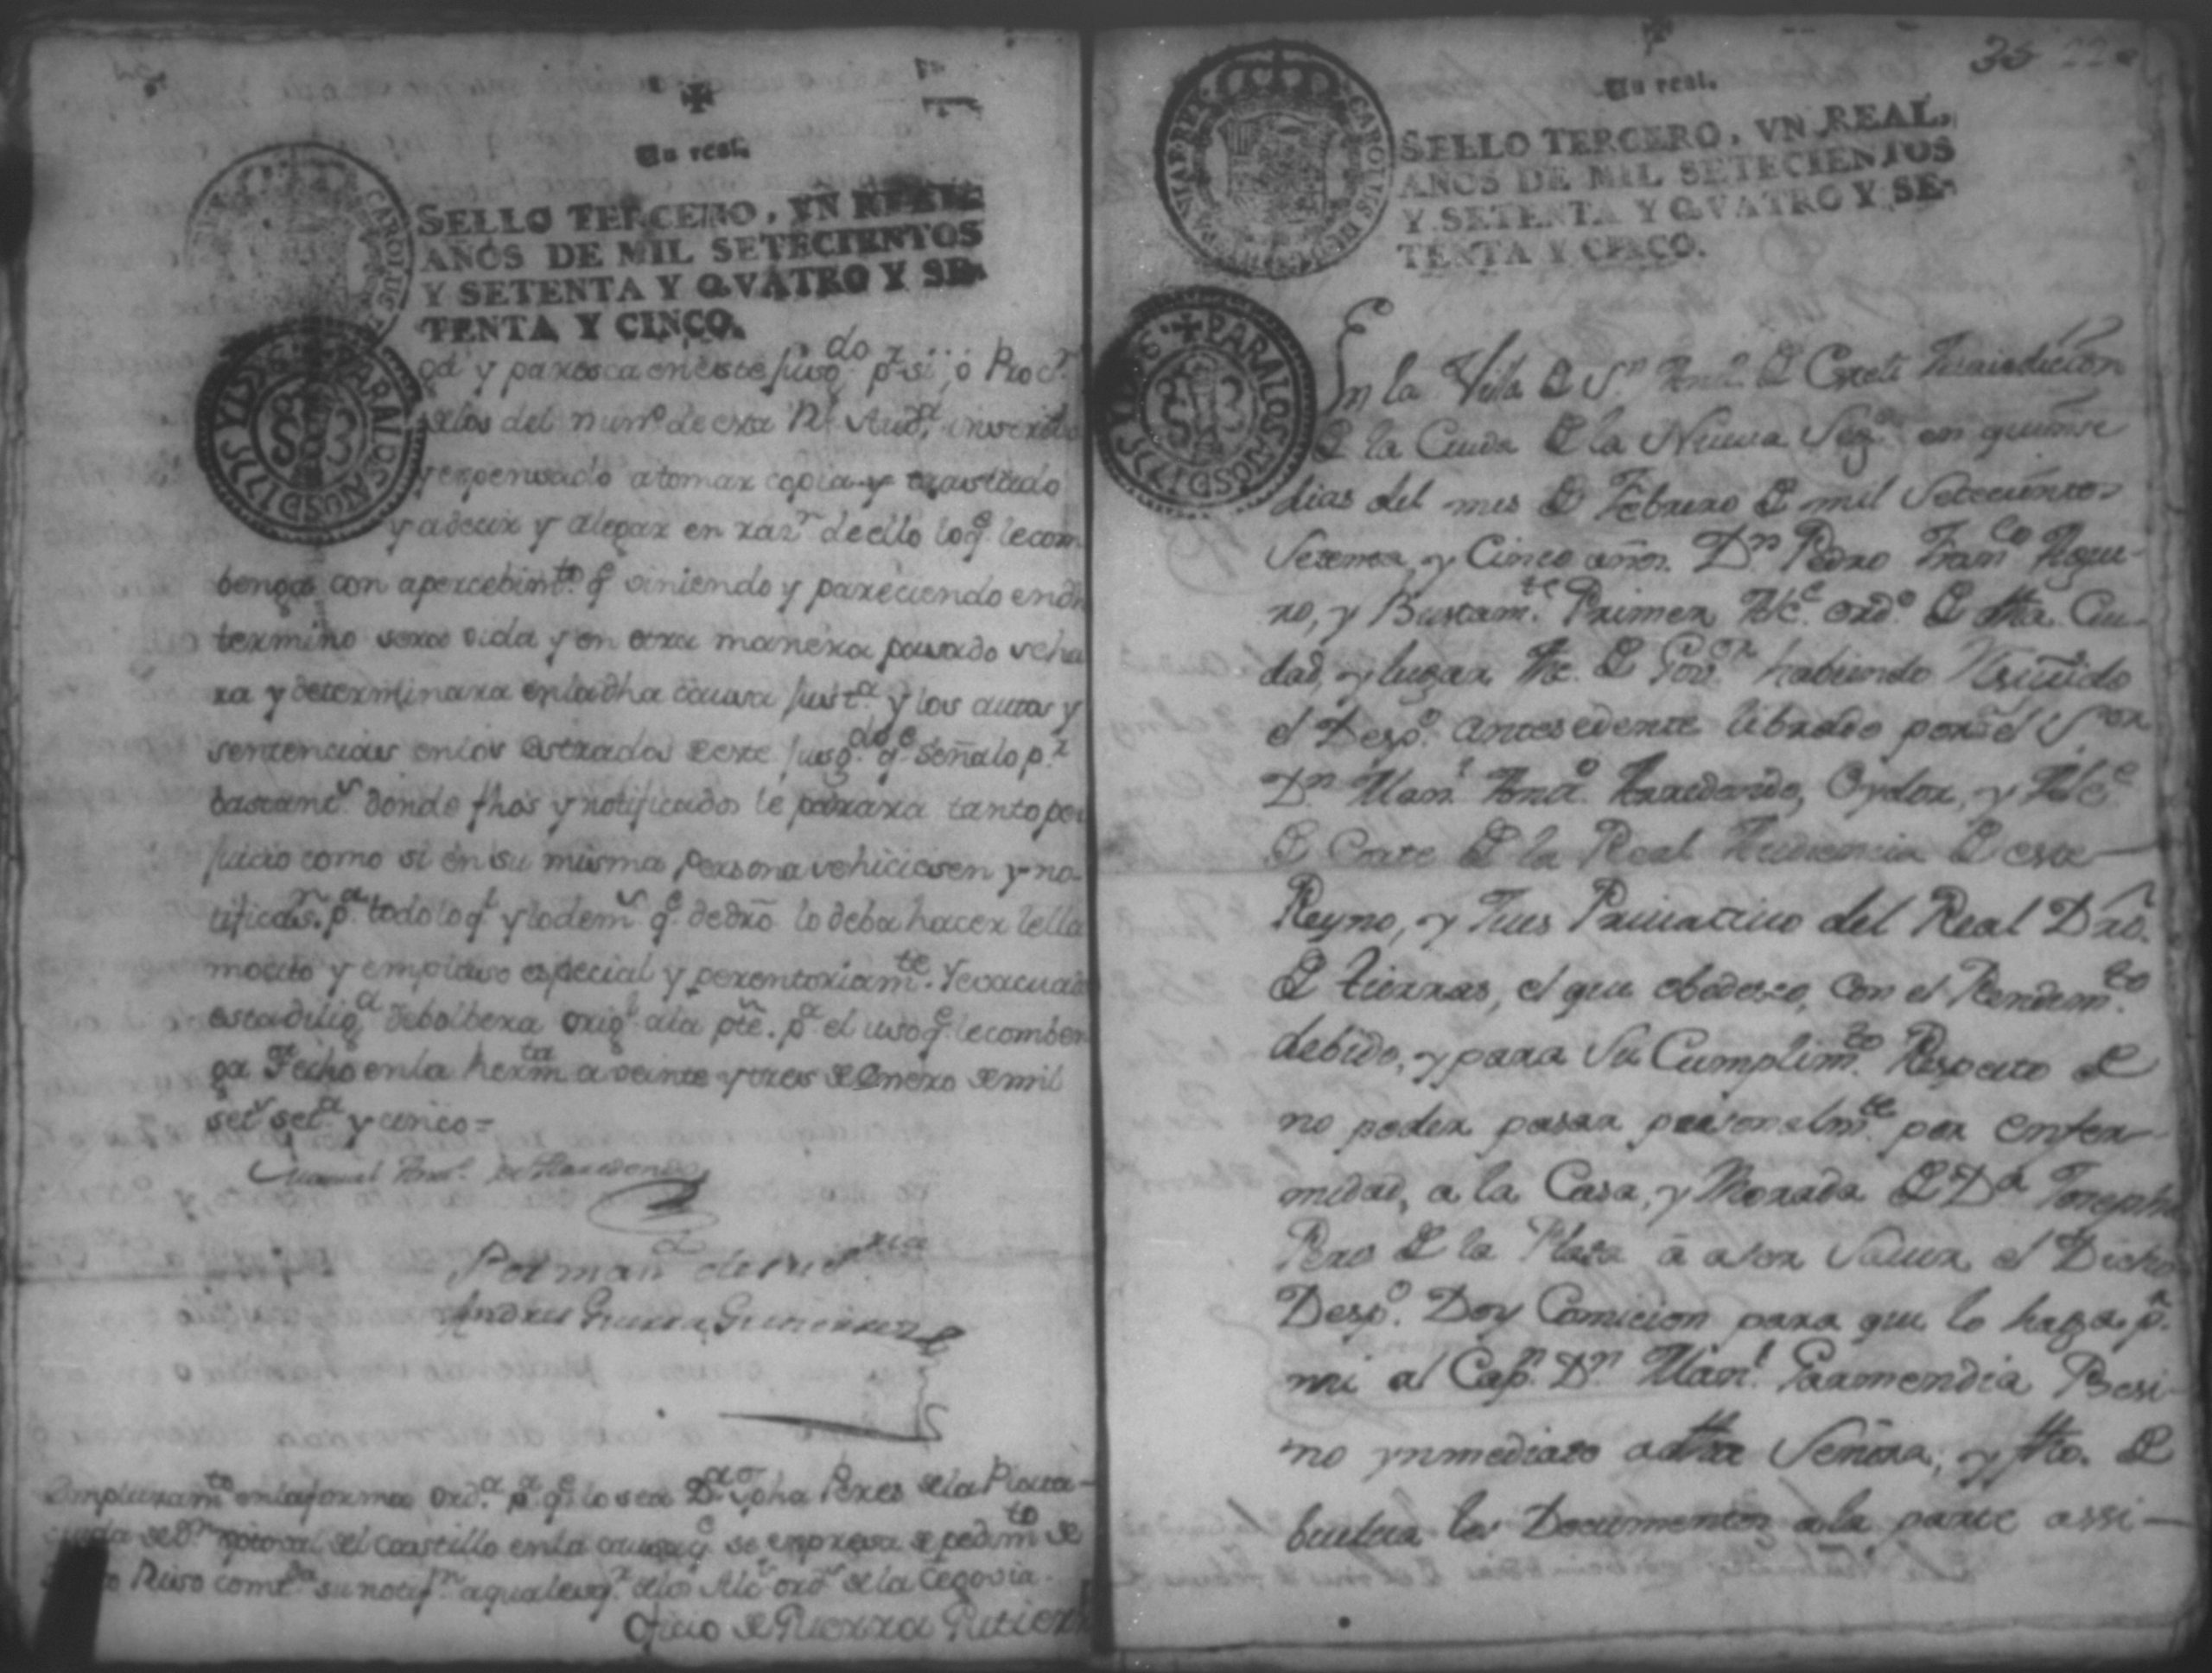 Un real.
SELLO TERCERO, VN REAL,
AÑOS DE MIL SETECIENTOS
Y SETENTA Y QVATRO Y SE-
TENTA Y CINCO.
CAROLUS
PARA LOS AÑOS D 1775 Y 1776
ga y paresca en este Juzgdo pr si, ó Procr
de los del numo de esta Rl Auda
y expensado a tomar copia y traslado
y adecir y alegar en razn de ello lo qe le com
benga con apercebimto qe viniendo y pareciendo en dho
termino sera oida y en otra manera pasado se ha
ra y determinara en la dha causa justa y los autos y
sentencias en los estrados de este Juzgdo qe señalo pr
bastantes donde fhos y notificados le parara tanto per
juicio como si en su misma persona se hiciesen y no-
tificasn pa todo lo ql y lo dems qe de dro lo deba hacer se lla
mo cito y emplaso especial y perentoriamte Y evacuada
esta diliga debolbera origl a la pte. pa el uso qe le comben
ga Fecho en la hermta a veinte y tres de Enero de mil
sets seta y cinco =
Manuel Anto de Arredondo
Por mando de su Sria
Andres Guerra Gutierrez
Emplazamto en la forma orda pa qe lo sea Da Jpha Peres de la Plata
viuda de Dn del Castillo en la causa qe se expresa de pedimto de
Ruiso comda su notifn a qualesqr de los Alcs ords de la Cegovia.
Oficio de Guerra Gutierr
35 22
Un real.
SELLO TERCERO, VN REAL,
AÑOS DE MIL SETECIENTOS
Y SETENTA Y QVATRO Y SE-
TENTA Y CINCO.
PARA LOS AÑOS D 1775 Y 1776
En la Villa de Sn Anto de Coxeti Jurisdicion
de la Ciuda de la Nueva Sega en quinse
dias del mes de Febrero de mil Setecientos
Setenta, y Cinco años. Dn Pedro Franco Agui-
ro, y Bustamte Primer Alce ordo de dha Ciu-
dad, y lugar The. de Govor habiendo Resivido
el Despo antesedente librado por el Sor
Dn Manl Anto Arredondo, Oydor, y Alce
de Corte de la Real Audiencia de este
Reyno, y Jues Privativo del Real Dro.
de tierras, el que obedesco, con el Rendimto
debido, y para su Cumplimto Respecto de
no poder pasar personalmte por enfer-
midad, a la Casa, y Morada de Da Josepha
Peres de la Plasa á aser Saver el Dicho
Despo Doy Comicion para que lo haga pr
mi al Capn Dn Manl Garmendia Besi-
no ynmediato a dha Señora, y fho. de
buelva los Documentos a la parte assi